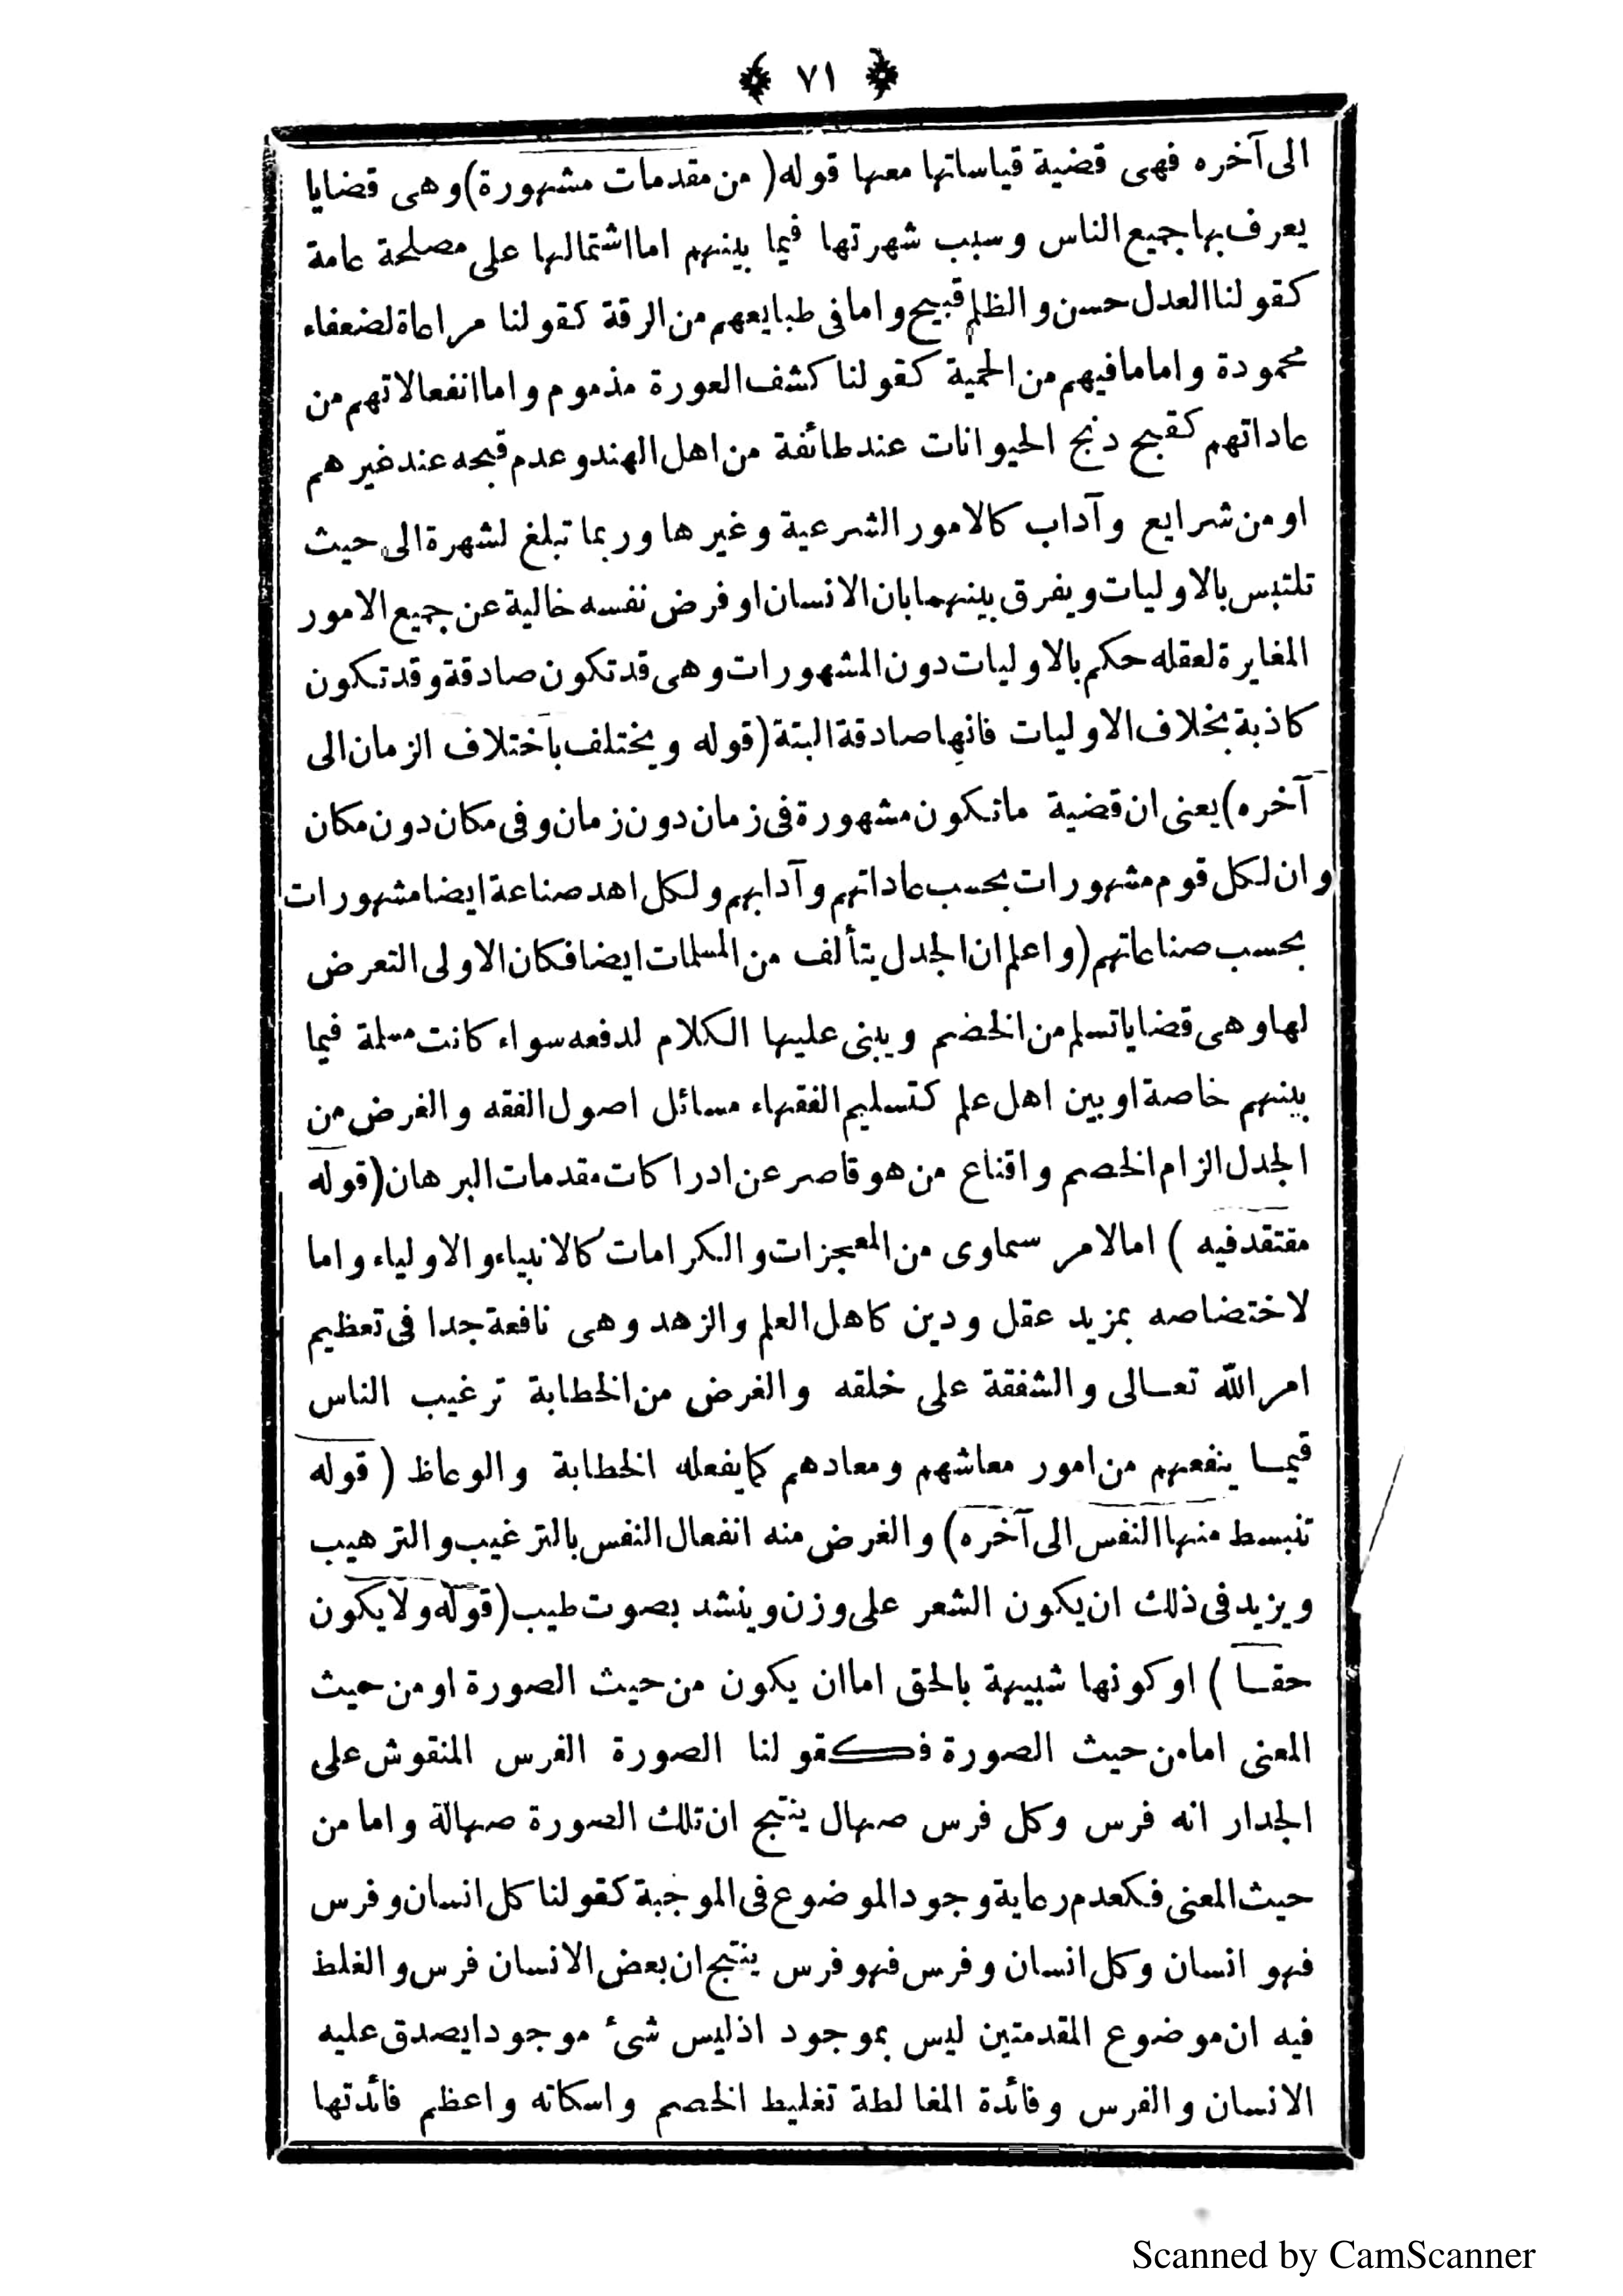 ﴿ ٧١ ﴾
الى آخره فهى قضية قياساتها معها قوله ( من مقدمات مشهورة ) وهى قضايا
يعرف بها جميع الناس وسبب شهرتها فيما بينهم اما اشتمالها على مصلحة عامة
كقولنا العدل حسن والظلم قبيح واما فى طبايعهم من الرقة كقولنا مراعاة لضعفاء
محمودة واما مافيهم من الحمية كقولنا كشف العورة مذموم واما انفعالاتهم من
عاداتهم كقبح ذبح الحيوانات عند طائفة من اهل الهند وعدم قبحه عند غيرهم
او من شرايع وآداب كالامور الشرعية وغيرها وربما تبلغ لشهرة الى حيث
تلتبس بالاوليات ويفرق بينهما بان الانسان او فرض نفسه خالية عن جميع الامور
المغايرة لعقله حكم بالاوليات دون المشهورات وهى قد تكون صادقة وقد تكون
كاذبة بخلاف الاوليات فانها صادقة البتة ( قوله ويختلف باختلاف الزمان الى
آخره ) يعنى ان قضية ما تكون مشهورة فى زمان دون زمان وفى مكان دون مكان
وان لكل قوم مشهورات بحسب عاداتهم وآدابهم ولكل اهد صناعة ايضا مشهورات
بحسب صناعاتهم ( واعلم ان الجدل يتألف من المسلمات ايضا فكان الاولى التعرض
لها وهى قضايا تسلم من الخضم ويبنى عليها الكلام لدفعه سواء كانت مسلمة فيما
بينهم خاصة او بين اهل علم كتسليم الفقهاء مسائل اصول الفقه والغرض من
الجدل الزام الخصم واقناع من هو قاصر عن ادراكات مقدمات البرهان ( قوله
مقتقد فيه ) اما لامر سماوى من المعجزات والكرامات كالانبياء والاولياء واما
لاختضاصه بمزيد عقل ودين كاهل العلم والزهد وهى نافعة جدا فى تعظيم
امر الله تعالى والشفقة على خلقه والغرض من الخطابة ترغيب الناس
فيما ينفعهم من امور معاشهم ومعادهم كما يفعله الخطابة والوعاظ ( قوله
تنبسط منها النفس الى آخره ) والغرض منه انفعال النفس بالترغيب والترهيب
ويزيد فى ذلك ان يكون الشعر على وزن وينشد بصوت طيب ( قوله ولا يكون
حقا ) او كونها شبيهة بالحق اما ان يكون من حيث الصورة او من حيث
المعنى اما من حيث الصورة فكقولنا الصورة الفرس المنقوش على
الجدار انه فرس وكل فرس صهال ينتج ان تلك الصورة صهالة واما من
حيث المعنى فكعدم رعاية وجود الموضوع فى الموجبة كقولنا كل انسان وفرس
فهو انسان وكل انسان وفرس فهو فرس ينتج ان بعض الانسان فرس والغلط
فيه ان موضوع المقدمتين ليس بموجود اذ ليس شئ موجود ايصدق عليه
الانسان والفرس وفائدة المغالطة تغليط الخصم واسكاته واعظم فائدتها
Scanned by CamScanner